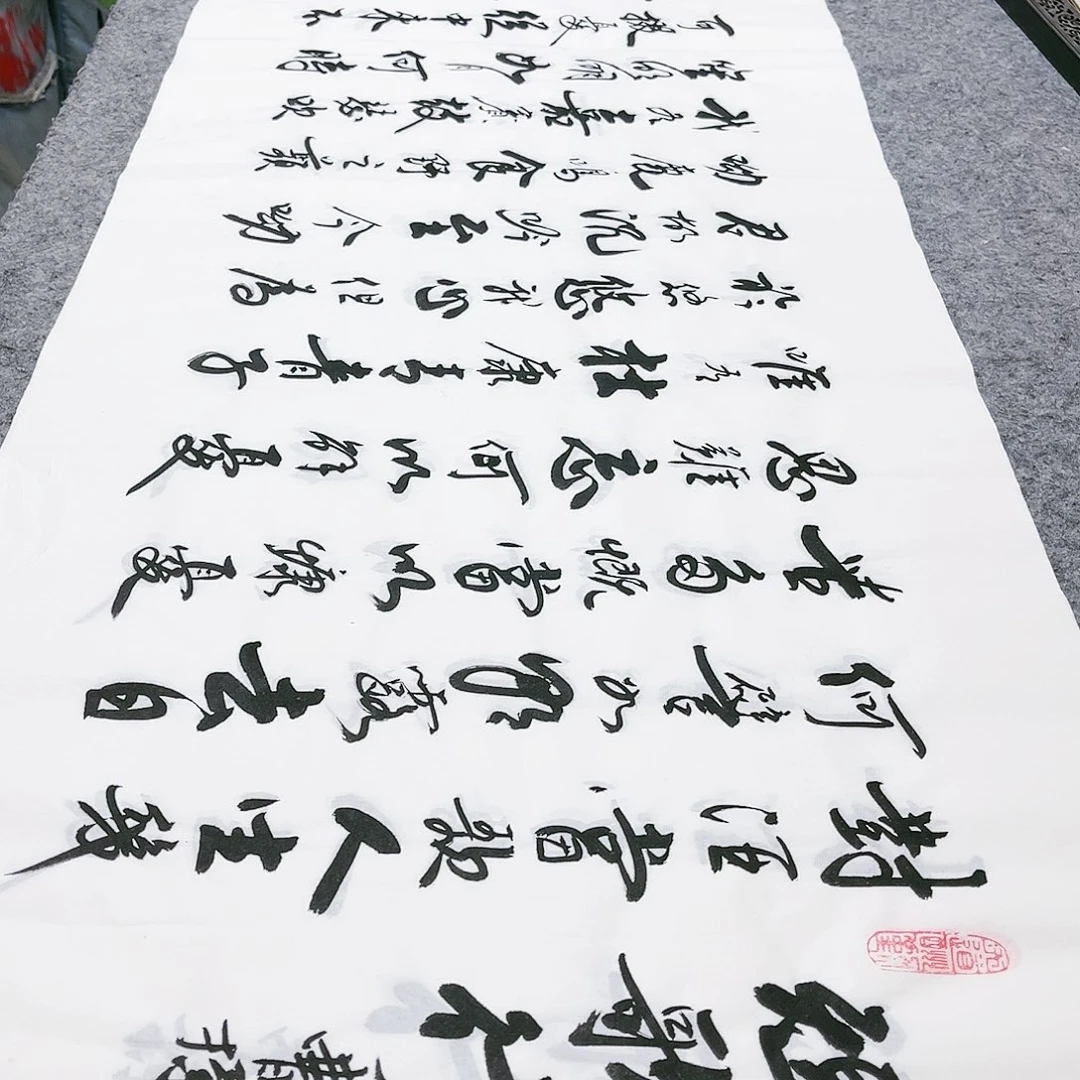 短歌行
曹操
對酒當歌人生幾
何譬如朝露去日
苦多慨當以慷憂
思難忘何以解憂
唯有杜康青青子
衿悠悠我心但為
君故沉吟至今呦
呦鹿鳴食野之蘋
我有嘉賓鼓瑟吹
笙明明如月何時
可掇憂從中來不